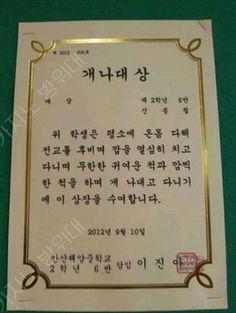 제 2012 - 008 호
개나대상
대상
제 2학년 6반
선종철
위 학생은 평소에 온몸 다해
전교를 후비며 깝을 열심히 치고
다니며 무한한 귀여운 척과 깜찍
한 척을 하며 개 나대고 다니기
에 이 상장을 수여합니다.
2012년 9월 10일
안산해양중학교
2학년 6반 담임 이진아